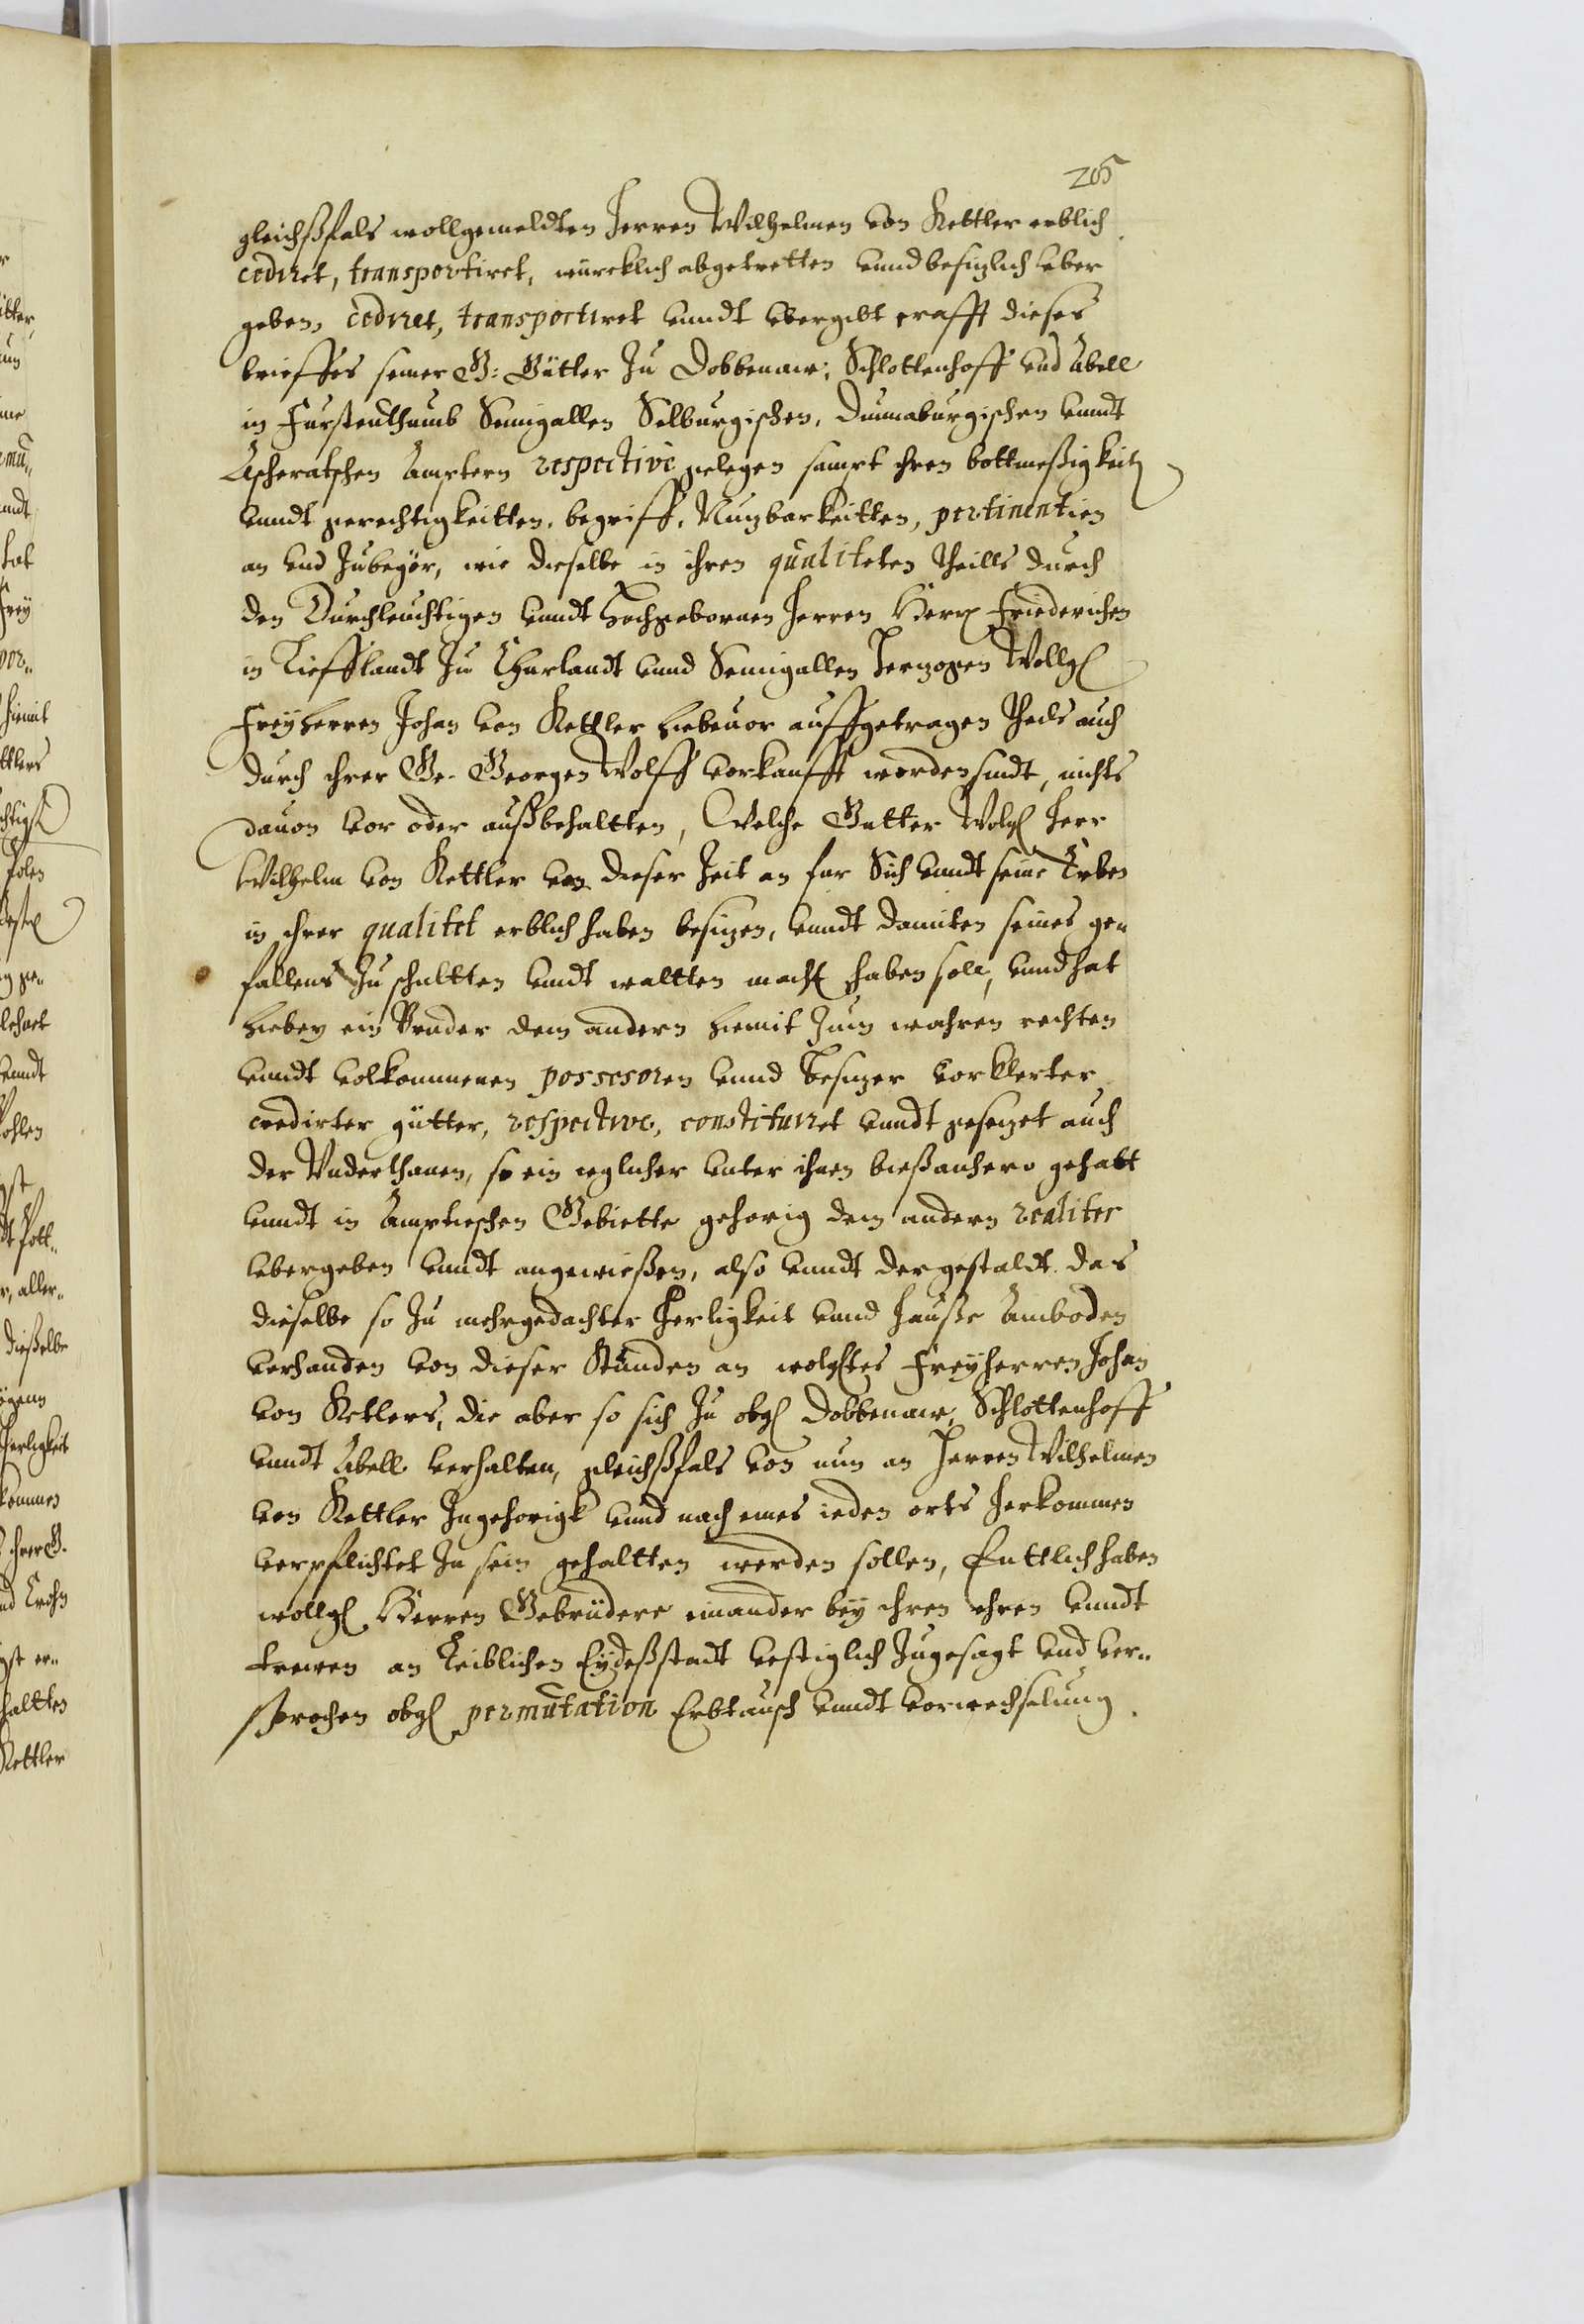 205
gleichßfals wollgemeldten Herren Wilhelmen von Kettler erblich
cediret, transportiret, würcklich abgetretten vnnd besizlich vber
geben, cediret, transportiret vnndt vbergibt crafft dieses
brieffes seiner G: Gütter zu Dobbenaw, Schlottenhoff vnd Abell
in Furstenthumb Semigallen Selburgischen, Dunaburgischen vnndt
Ascheratschen Amptern respectivè gelegen sampt ihren bottmeßigkeit
vnndt gerechtigkeitten, begriff, Nuzbarkeitten, pertinentien
an vnd zubehör, wie dieselbe in ihren qualiteten theills durch
den Durchleuchtigen vnndt Hochgebornen Herren Herrn Friederichen
in Liefflandt zu Churlandt vnnd Semigallen Herzogen Wollg
Freyherren Johan von Kettler hiebeuor auffgetragen theils auch
durch ihrer Ge. Georgen Wolff verkaufft worden sindt, nichts
dauon vor oder außbehaltten, Welche Gutter Wolg Herr
Wilhelm von Kettler von dieser Zeit an fur Sich vnndt seine Erben
in ihrer qualitet erblich haben besizen, vnndt damiten seines ge-
fallens zu schaltten vnndt waltten macht haben soll, vnnd hat
hiebey ein Bruder dem andern hiemit zum wahren rechten
vnndt volkommenen possesoren vnnd Besizer vorklerter
cedirter gütter, respective, constituiret vnndt gesezet auch
der Vnderthanen, so ein ieglicher vnter ihnen bießanhero gehabt
vnndt in Amptieschen Gebiette gehorig dem andern realiter
vbergeben vnndt angewießen, also vnndt dergestaldt das
dieselbe so zu mehrgedachter Herligkeit vnnd Hauße Amboden
verhanden von dieser Stunden an wolgtes Freyherren Johan
von Ketlers, die aber so sich zu obg Dobbenaw, Schlottenhoff
vnndt Abell verhalten, gleichßfals von nun an Herren Wilhelmen
von Kettler zugehorigk vnnd nach eines ieden orts herkommen
verpflichtet zu sein gehaltten werden sollen, Enttlich haben
wollg Herren Gebrüdere einander bey ihren ehren vnndt
trewen an Leiblichen Eydeßstadt vestiglich zugesagt vnd ver-
sprochen obg permutation Erbtausch vnndt vorwechselung